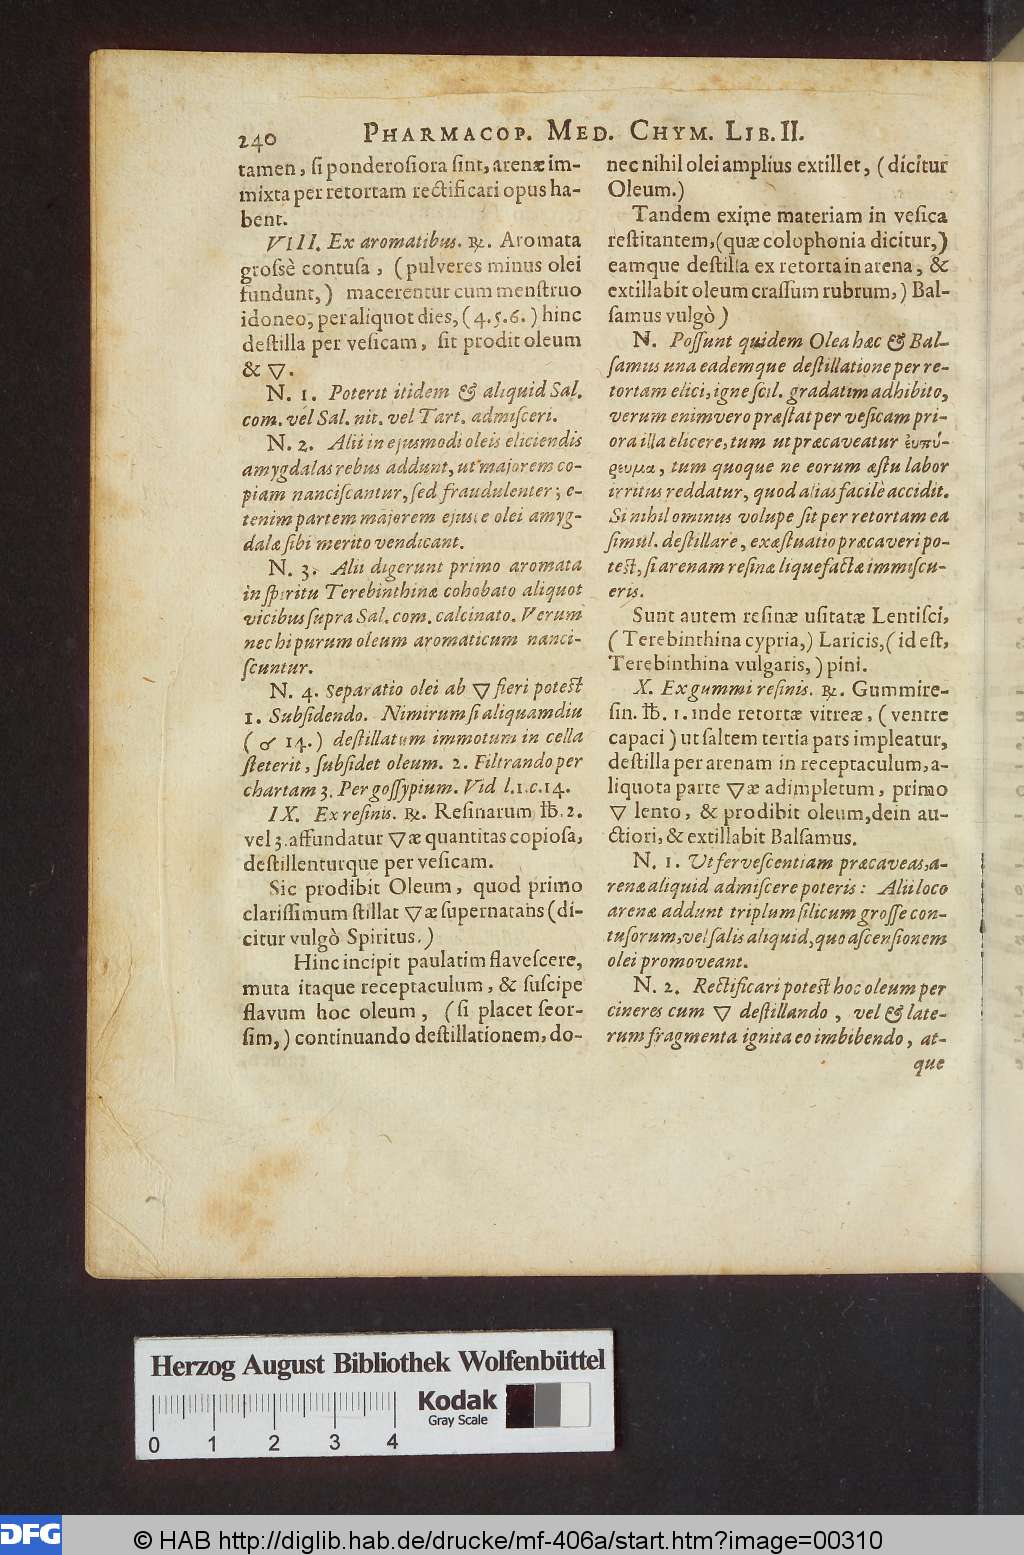 240 PHARMACOP. MED. CHYM. LIB. II.
tamen, ſi ponderoſiora ſint, arenæ im-
mixta per retortam rectificari opus ha-
bent.
VIII. Ex aromatibus. ℞. Aromata
groſsè contuſa, (pulveres minus olei
fundunt,) macerentur cum menſtruo
idoneo, per aliquot dies, (4.5.6.) hinc
deſtilla per veſicam, ſic prodit oleum
& 🜄.
N. 1. Poterit itidem & aliquid Sal.
com. vel Sal. nit. vel Tart. admiſceri.
N. 2. Alii in ejusmodi oleis eliciendis
amygdalas rebus addunt, ut majorem co-
piam nanciſcantur, ſed fraudulenter; e-
tenim partem majorem ejus e olei amyg-
dalæ ſibi merito vendicant.
N. 3. Alii digerunt primo aromata
in ſpiritu Terebinthinæ cohobato aliquot
vicibus ſupra Sal. com. calcinato. Verum
nec hi purum oleum aromaticum nanci-
ſcuntur.
N. 4. Separatio olei ab 🜄 fieri poteſt
1. Subſidendo. Nimirum ſi aliquamdiu
(☌ 14.) deſtillatum immotum in cella
ſteterit, ſubſidet oleum. 2. Filtrando per
chartam 3. Per goſſypium. Vid l.1.c.14.
IX. Ex reſinis. ℞. Reſinarum ℔. 2.
vel 3. affundatur 🜄æ quantitas copioſa,
deſtillenturque per veſicam.
Sic prodibit Oleum, quod primo
clariſſimum ſtillat 🜄æ ſupernatans (di-
citur vulgò Spiritus.)
Hinc incipit paulatim flaveſcere,
muta itaque receptaculum, & ſuſcipe
flavum hoc oleum, (ſi placet ſeor-
ſim,) continuando deſtillationem, do-
nec nihil olei amplius extillet, (dicitur
Oleum.)
Tandem exime materiam in veſica
reſtitantem, (quæ colophonia dicitur,)
eamque deſtilla ex retorta in arena, &
extillabit oleum craſſum rubrum,) Bal-
ſamus vulgò)
N. Poſſunt quidem Olea hæc & Bal-
ſamus una eademque deſtillatione per re-
tortam elici, igne ſcil. gradatim adhibito,
verum enimvero præſtat per veſicam pri-
ora illa elicere, tum ut præcaveatur ἐυπύ-
ρευμα, tum quoque ne eorum æſtu labor
irritus reddatur, quod alias facilè accidit.
Si nihilominus volupe ſit per retortam ea
ſimul. deſtillare, exæſtuatio præcaveri po-
teſt, ſi arenam reſinæ liquefactæ immiſcu-
eris.
Sunt autem reſinæ uſitatæ Lentiſci,
(Terebinthina cypria,) Laricis, (id eſt,
Terebinthina vulgaris,) pini.
X. Ex gummi reſinis. ℞. Gummire-
ſin. ℔. 1. inde retortæ vitreæ, (ventre
capaci) ut ſaltem tertia pars impleatur,
deſtilla per arenam in receptaculum, a-
liquota parte 🜄æ adimpletum, primo
🜄 lento, & prodibit oleum, dein au-
ctiori, & extillabit Balſamus.
N. 1. Ut ferveſcentiam præcaveas, a-
renæ aliquid admiſcere poteris: Alii loco
arenæ addunt triplum ſilicum groſſe con-
tuſorum, vel ſalis aliquid, quo aſcenſionem
olei promoveant.
N. 2. Rectificari poteſt hoc oleum per
cineres cum 🜄 deſtillando, vel & late-
rum fragmenta ignita eo imbibendo, at-
que
Herzog August Bibliothek Wolfenbüttel
Kodak
Gray Scale
0 1 2 3 4
DFG © HAB http://diglib.hab.de/drucke/mf-406a/start.htm?image=00310